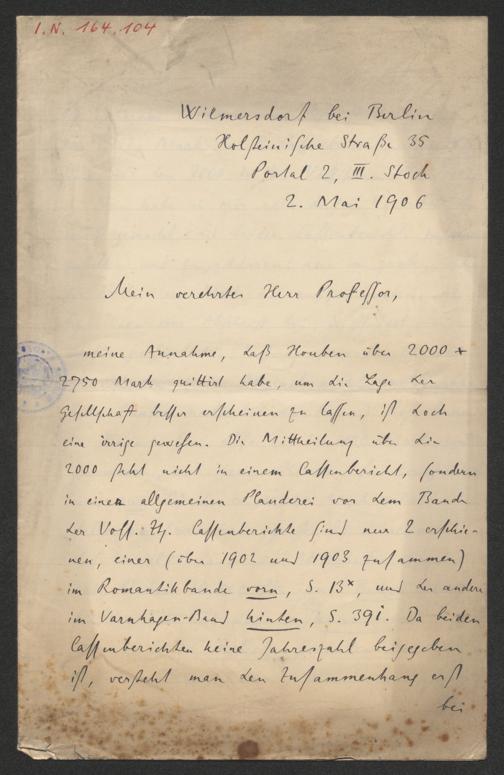 I.N. 164.104
Wilmersdorf bei Berlin
Holsteinische Straße 35
Portal 2, III. Stock
2. Mai 1906
Mein verehrter Herr Professor,
meine Annahme, daß Houben über 2000 +
2750 Mark quittirt habe, um die Lage der
Gesellschaft besser erscheinen zu lassen, ist doch
eine irrige gewesen. Die Mittheilung über die
2000 steht nicht in einem Cassenbericht, sondern
in einer allgemeinen Plauderei vor dem Bande
der Voss. Ztg. Cassenberichte sind nur 2 erschie-
nen, einer (über 1902 und 1903 zusammen)
im Romantikbande vorn, S. 13*, und der andere
im Varnhagen-Band hinten, S. 391. Da beiden
Cassenberichten keine Jahreszahl beigegeben
ist, versteht man den Zusammenhang erst
bei